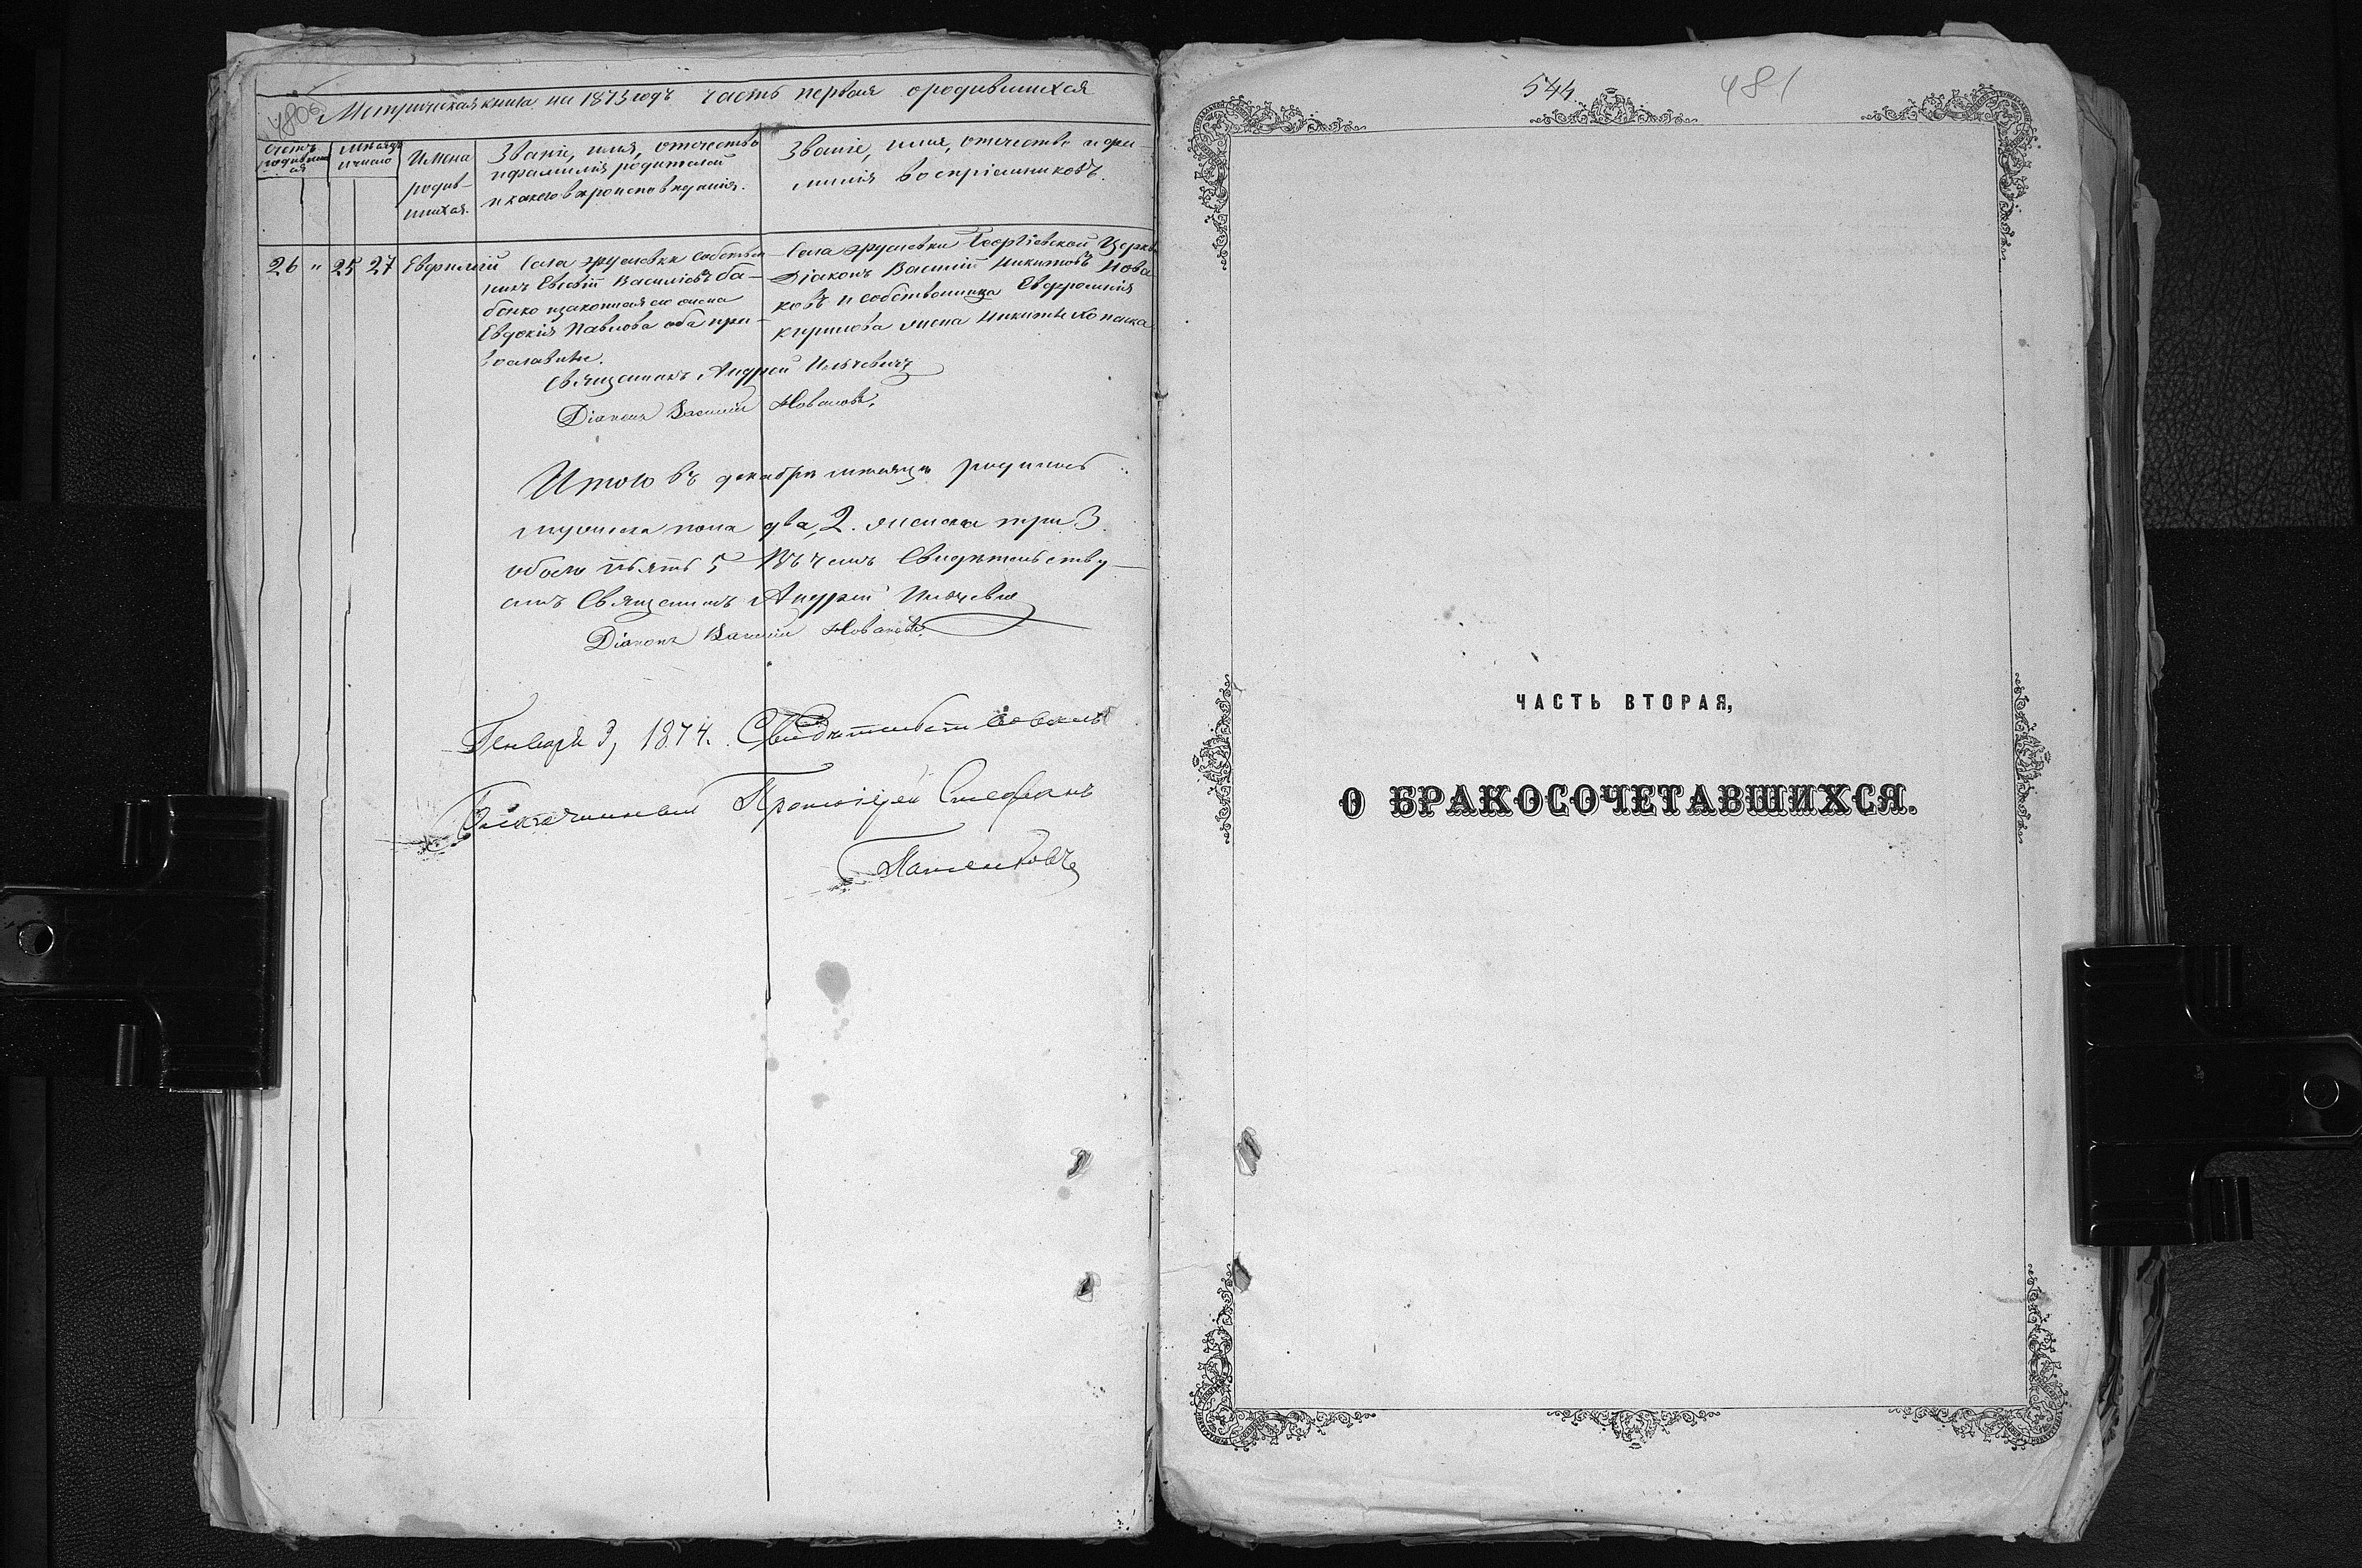 480об
Метрическая книга на 1873 годъ часть первая о родившихся
Счетъ родившихся
Мѣсяцъ и число
Имена родившихся.
Званіе, имя, отечество и фамилія родителей и какого вѣроисповѣданія.
Званіе, имя, отечество и фамилія воспріемниковъ.
26 " 25 27 Евфимій
Села Грушевки собствен-
никъ Евсевій Васильевъ Ба-
бенко и законная его жена
Евдокія Павлова оба пра-
вославные.
Села Грушевки Георгіевской Церкви
Діаконъ Василій Никитовъ Нова
ковъ и собственница Евфросинія
Кирилова жена Никиты
Священникъ Андрей Ильчевичъ
Діаконъ Василій Новаковъ.
Итого въ декабрѣ мѣсяцѣ родилось
мужеска пола два, 2. женска три 3
обоего пять 5 Въ чемъ Свидѣтельству-
емъ Священникъ Андрей Ильчевич
Діаконъ Василій Новаковъ.
Генваря 3, 1874. Свидѣтельствовалъ
Благочинный Протоіерей Стефанъ
544
481
ЧАСТЬ ВТОРАЯ,
О БРАКОСОЧЕТАВШИХСЯ.